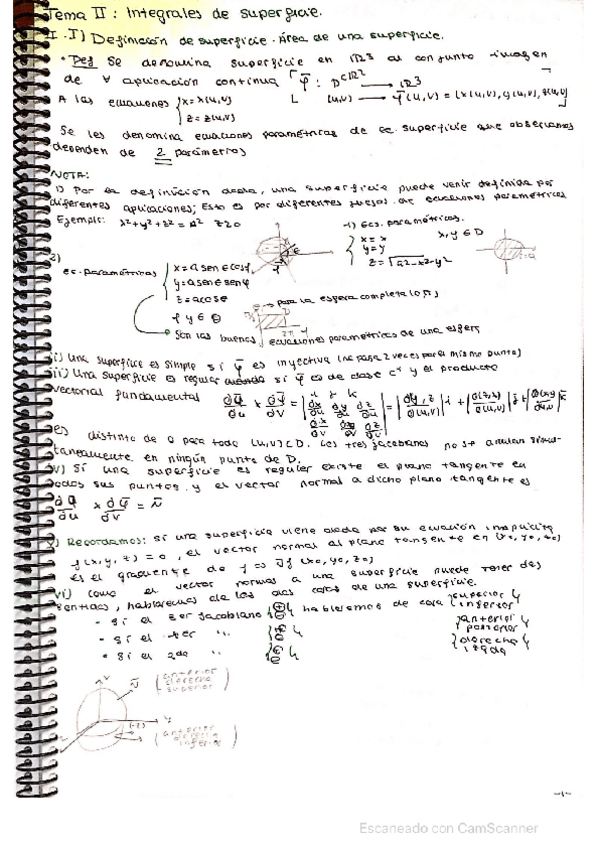 Tema II: Integrales de superficie.
II.I) Definición de superficie. Área de una superficie.
• Def Se denomina superficie en ℝ3 al conjunto imagen
de ∀ aplicación continua φ̄ : D⊂ℝ2 → ℝ3
(u,v) → φ̄(u,v) = (x(u,v), y(u,v), z(u,v))
A las ecuaciones { x = x(u,v)
z = z(u,v)
Se les denomina ecuaciones paramétricas de ec. superficie que observamos
dependen de 2 parámetros
NOTA:
1) Por la definición dada, una superficie puede venir definida por
diferentes aplicaciones; Esto es por diferentes juegos de ecuaciones paramétricas
Ejemplo: x²+y²+z² = a² z≥0
1) Ecs. paramétricas.
x = x
y = y
z = √a²-x²-y²
x,y ∈ D
2)
ec. paramétricas { x = a senθ cosφ
y = a senθ senφ
z = a cosθ
φ y θ ∈
→ para la esfera completa
Son las buenas, ecuaciones paramétricas de una esfera
ii) Una superficie es simple si φ̄ es inyectiva (no pasa 2 veces por el mismo punto)
iii) Una superficie es regular cuando si φ̄ es de clase c¹ y el producto
vectorial fundamental
es distinto de 0 para todo (u,v) ⊂ D. Los tres jacobianos no se anulan simul-
taneamente en ningún punto de D.
v) Si una superficie es regular existe el plano tangente en
todos sus puntos y el vector normal a dicho plano tangente es
= N̄
v) Recordamos: si una superficie viene dada por su ecuación implícita
f(x,y,z) = 0, el vector normal al plano tangente en (x0, y0, z0)
es el gradiente de f = ∇f (x0, y0, z0)
vi) como el vector normal a una superficie puede tener dos
sentidos, hablaremos de las dos caras de una superficie.
- si el 3er jacobiano hablaremos de cara { superior
inferior
- si el 1er "
{ anterior
posterior
• si el 2do "
{ derecha
izqda
N̄ ( anterior
derecha
superior )
( anterior
derecha
inferior )
-1-
Escaneado con CamScanner